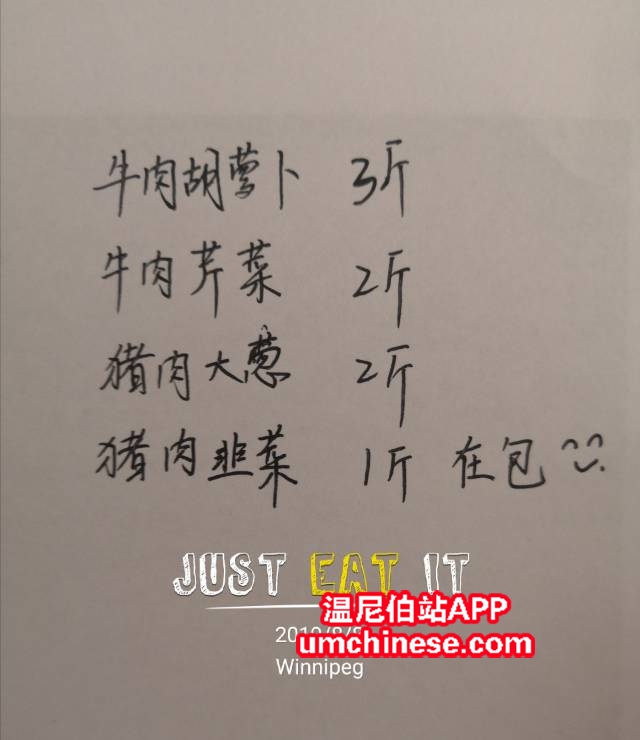 牛肉胡萝卜 3斤
牛肉芹菜 2斤
猪肉大葱 2斤
猪肉韭菜 1斤 在包
JUST EAT IT
温尼伯站APP
umchinese.com
Winnipeg